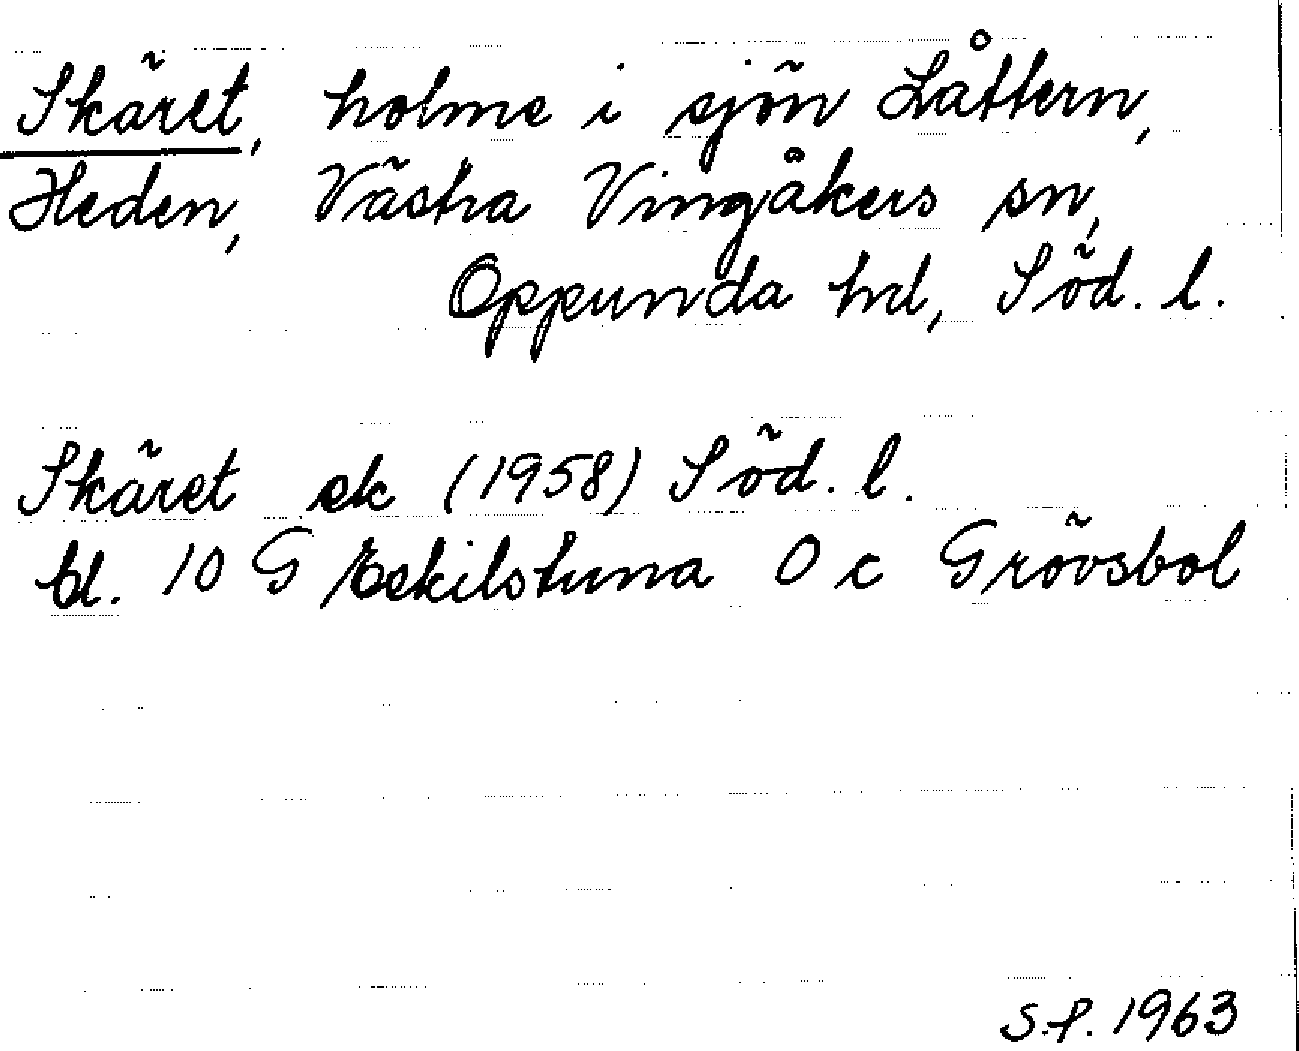 Skäret, holme i sjön Låttern,
Heden, Västra Vingåkers sn,
Oppunda hd, Söd. l.
Skäret ek (1958) Söd. l.
bl. 10 G Eskilstuna 0 c Grövsbol
S.F. 1963